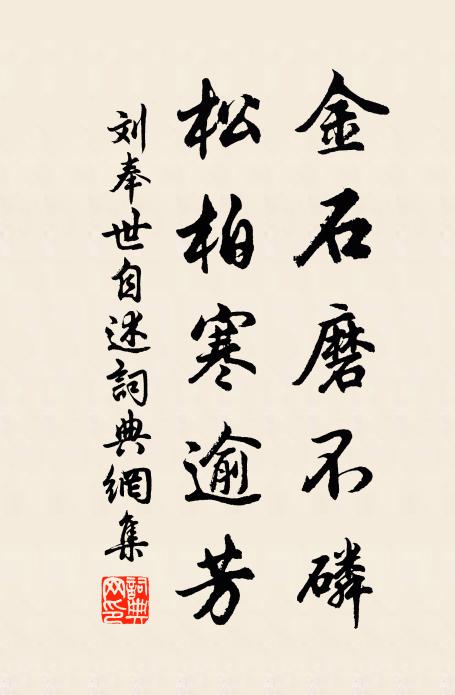 金石磨不磷
松柏寒逾芳
刘奉世自述詞典網集
詞典网印